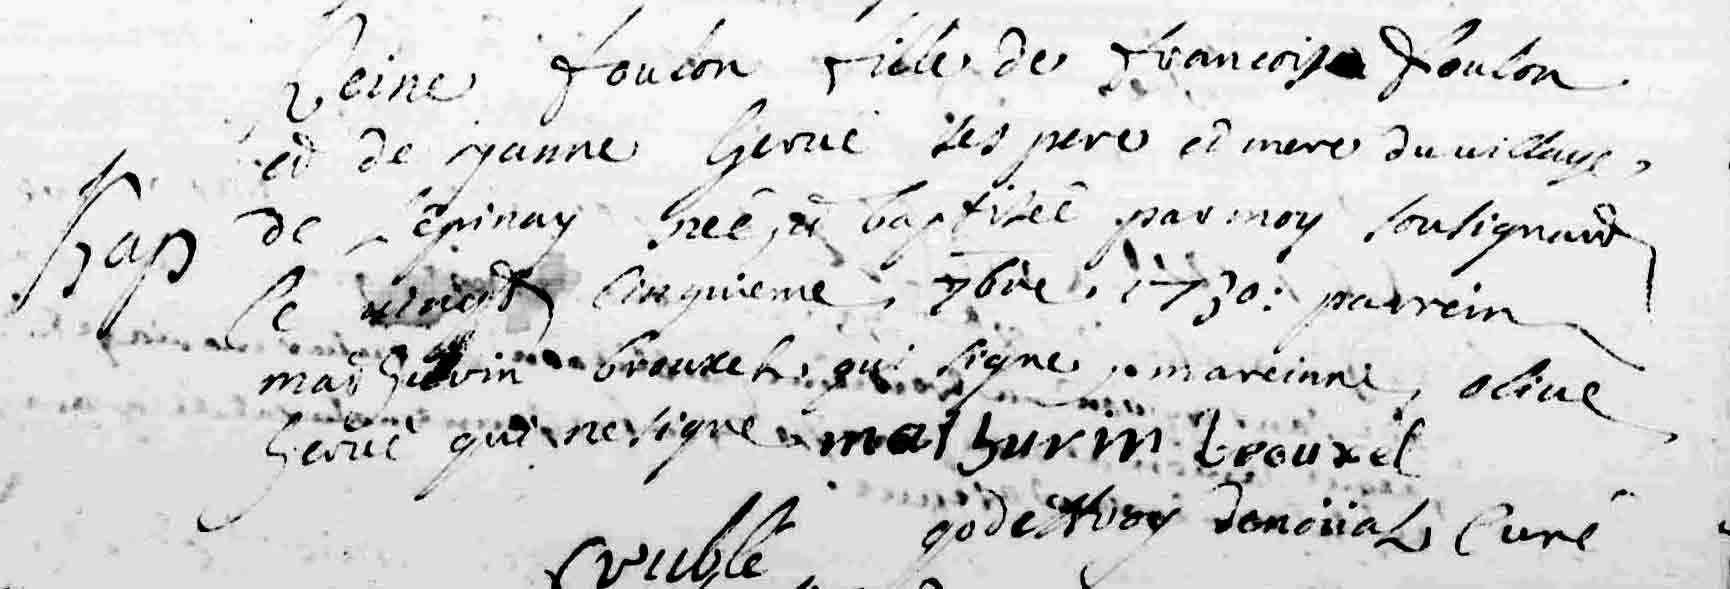 Reine foulon fille de francois foulon
et de janne hervé ses pere et mere du village
bap de L'epinay née et baptisée par moy sousignant
le vingt cinquieme 7bre 1730: parrein
mathurin brouxel qui signe mareinne olive
hervé qui ne signe mathurin brouxel
godeffroy denoüal Curé